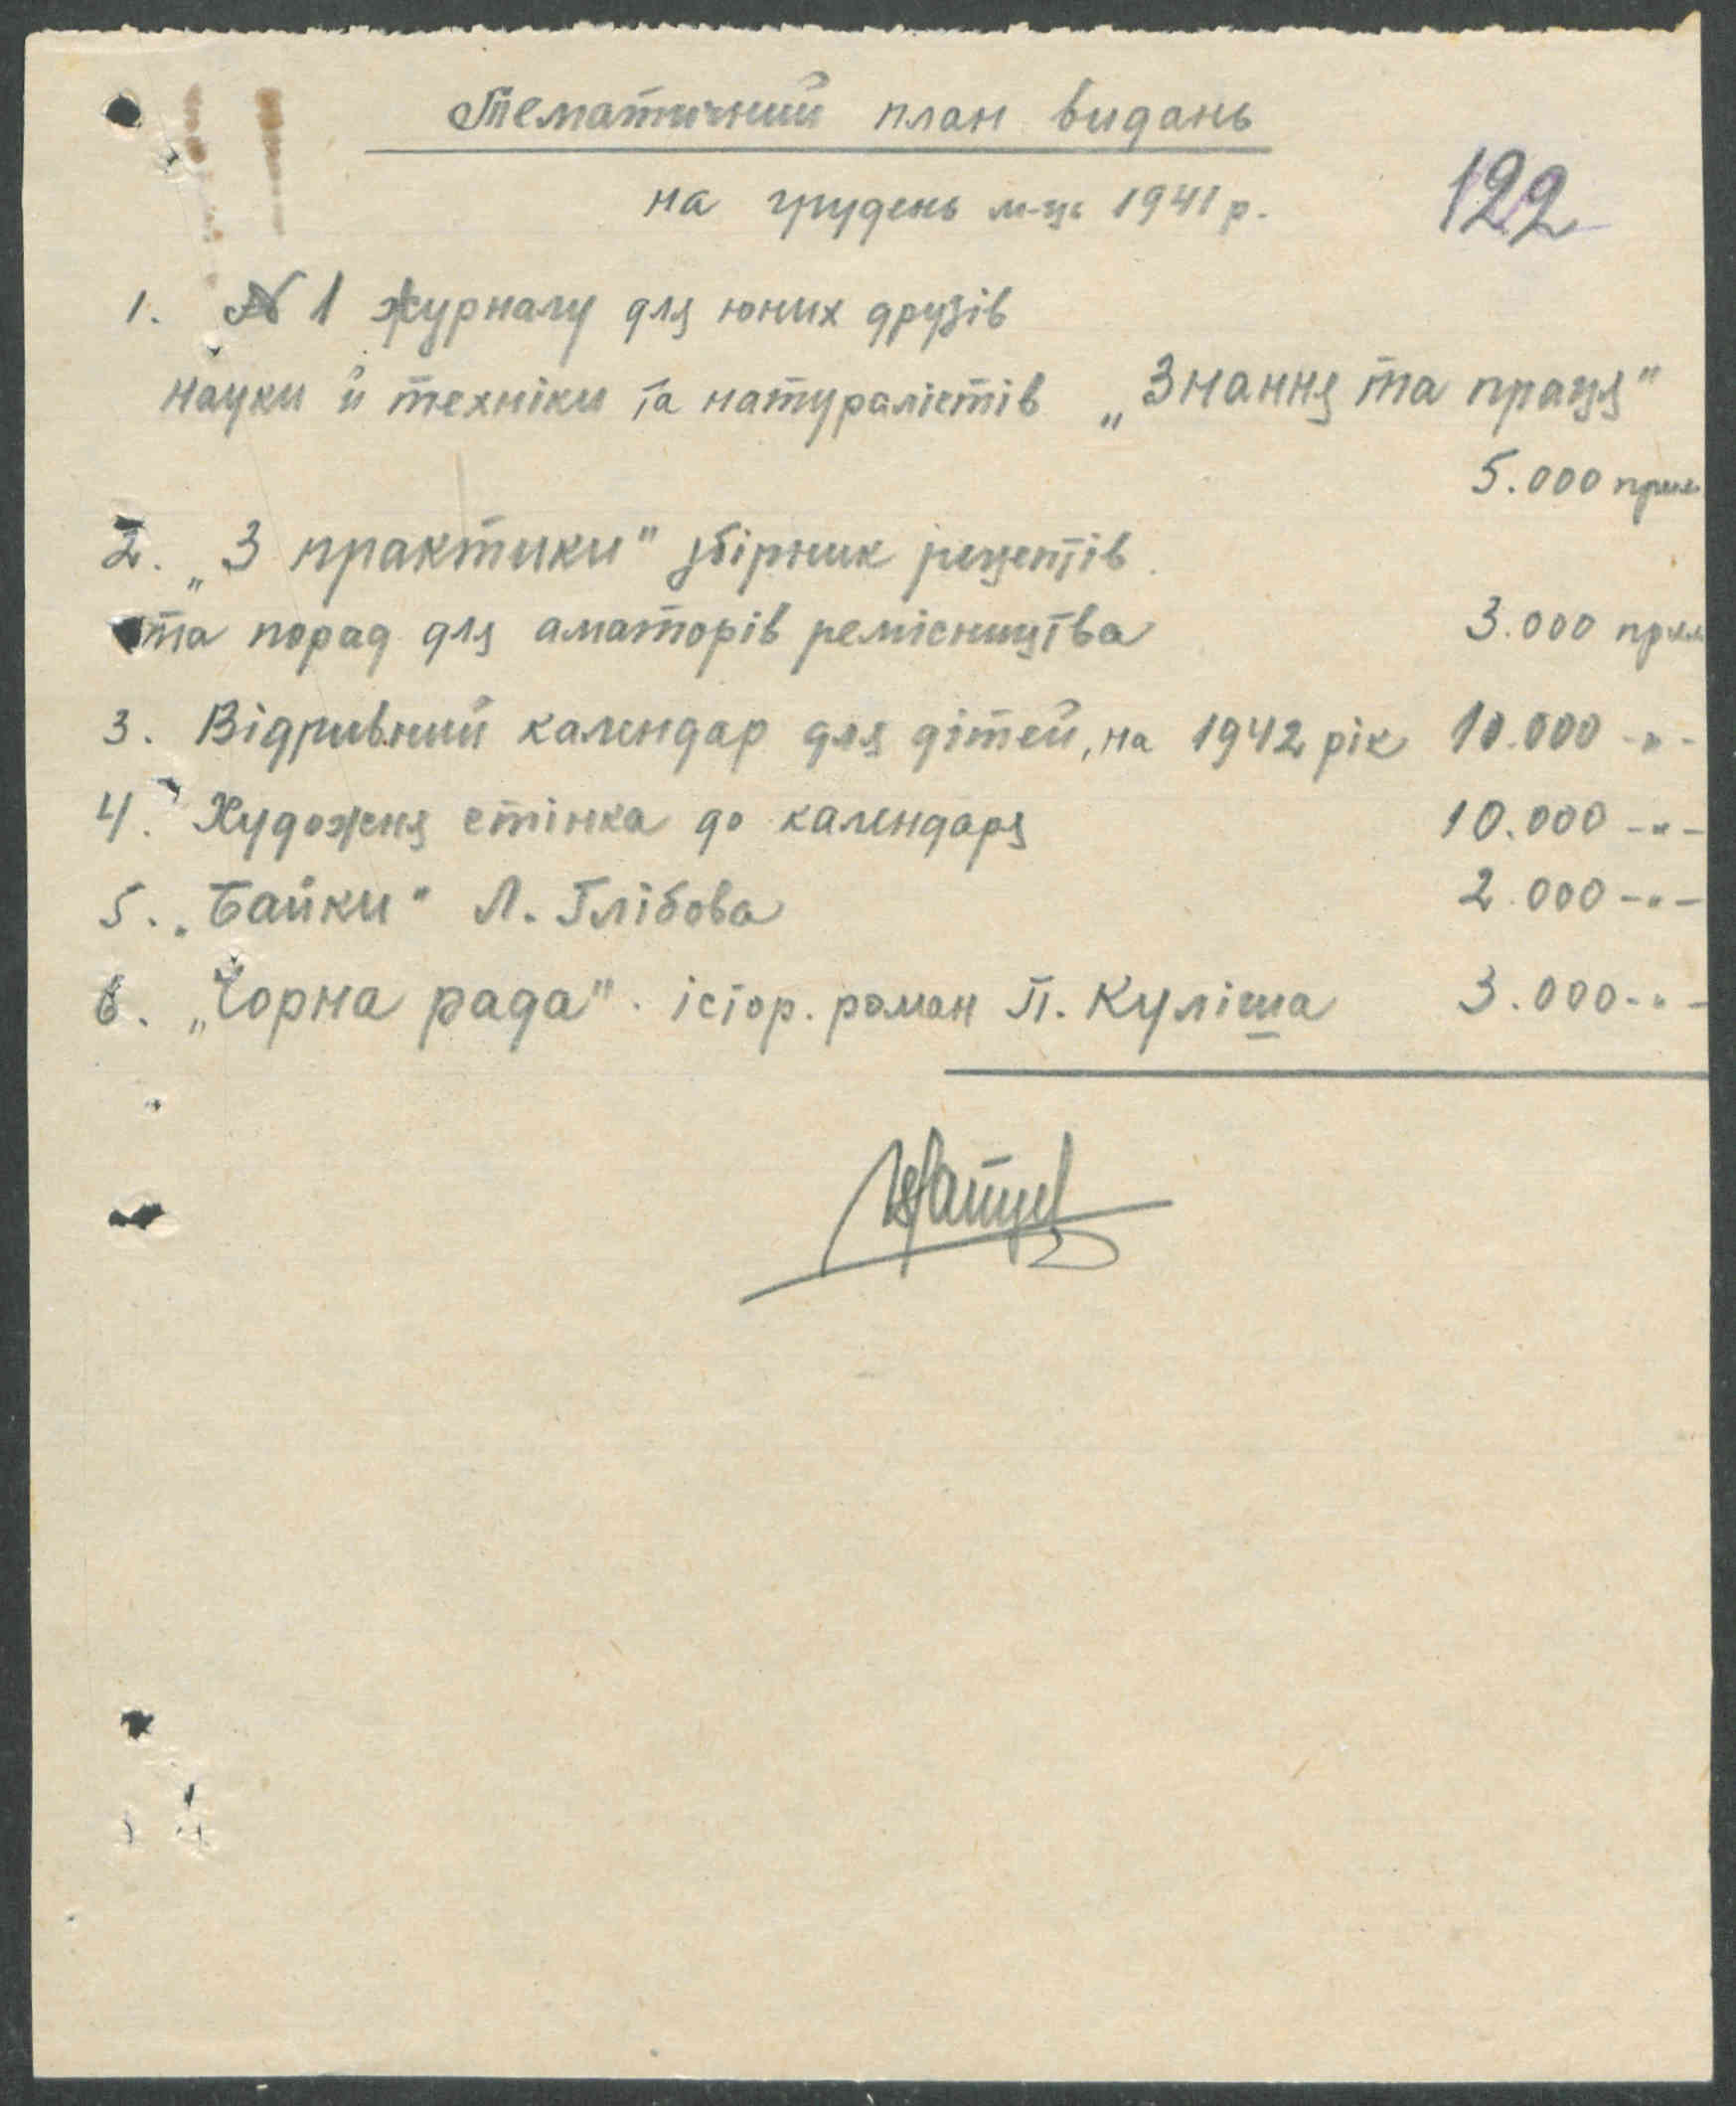 Тематичний план видань
на грудень м-ць 1941 р.
122
1. № 1 журналу для юних друзів
науки й техніки та натуралістів „Знання та праця"
5.000 прим
2. „З практики" збірник рецептів
та порад для аматорів ремісництва 3.000 прим
3. Відривний календар для дітей, на 1942 рік 10.000 -"-
4. Художня стінка до календаря 10.000 -"-
5. „Байки" Л. Глібова 2.000 -"-
6. „Чорна рада". істор. роман П. Куліша 3.000 -"-